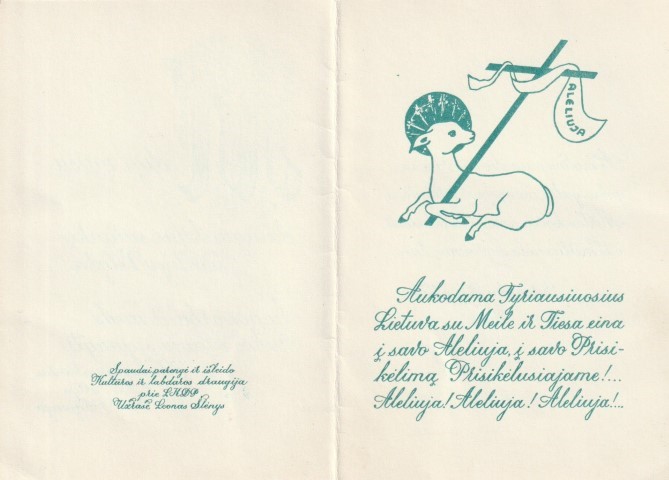 Spaudai parengė ir išleido
Kultūros ir labdaros draugija
prie LKDP
Užrašė Leonas Slėnys
ALELIUJA
Aukodama Tyriausiuosius
Lietuva su Meile ir Tiesa eina
į savo Aleliuja, į savo Prisi-
kėlimą Prisikėlusiajame!...
Aleliuja! Aleliuja! Aleliuja!...